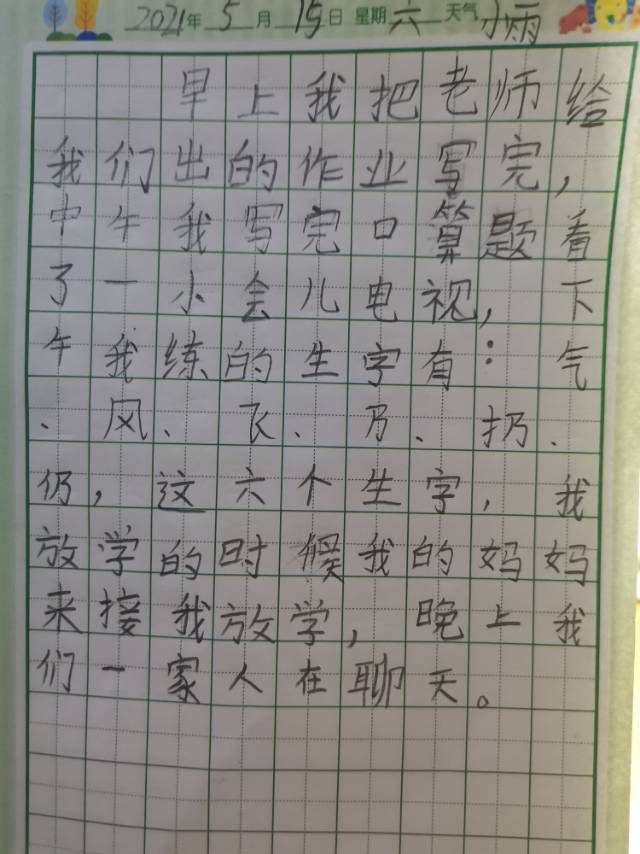 2021年5月15日 星期六 天气小雨
早上我把老师给
我们出的作业写完，
中午我写完口算题看
了一小会儿电视，下
午我练的生字有：气
、风、飞、乃、扔、
仍，这六个生字，我
放学的时候我的妈妈
来接我放学，晚上我
们一家人在聊天。